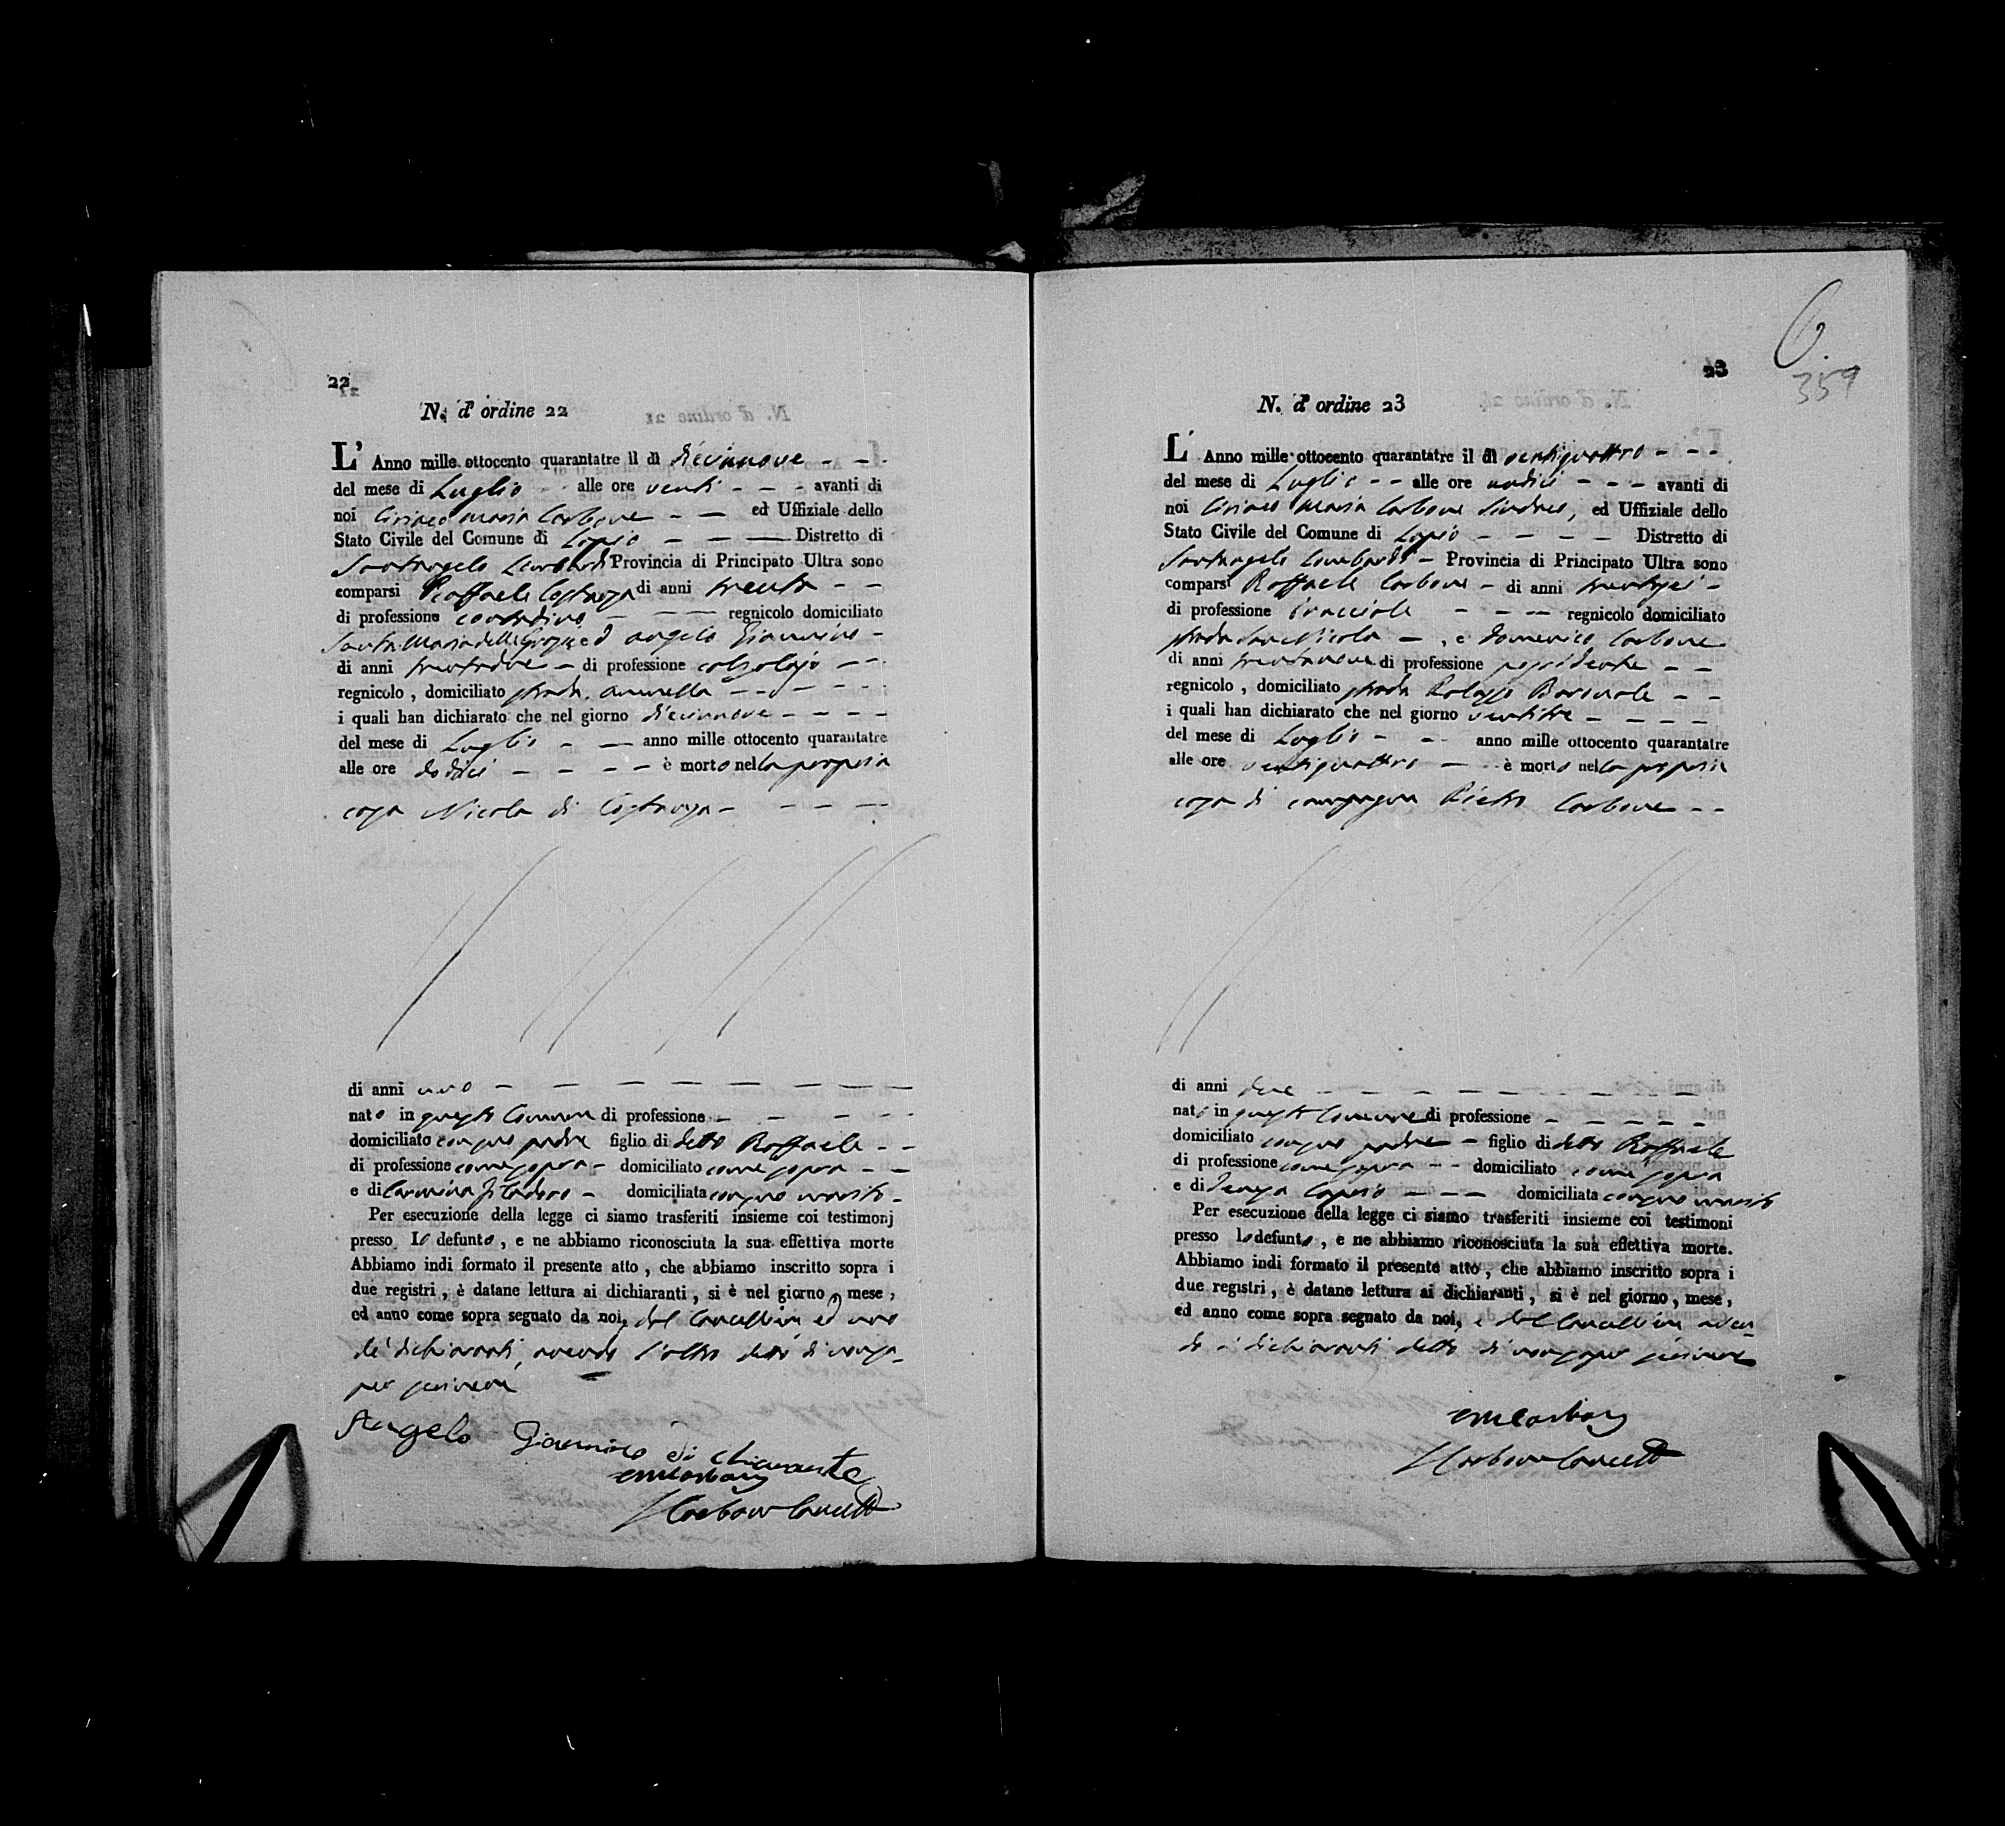 22
N. d'ordine 22
L'Anno mille ottocento quarantatre il dì diecinnove
del mese di Luglio alle ore venti avanti di
noi Ciriaco Maria Carbone ed Uffiziale dello
Stato Civile del Comune di Lapio Distretto di
Santangelo Lombardi Provincia di Principato Ultra sono
comparsi Raffaele Costanza di anni trenta
di professione contadino regnicolo domiciliato
Santa Maria delle Grazie ed Angelo Giannino
di anni trentadue di professione calzolajo
regnicolo, domiciliato strada
i quali han dichiarato che nel giorno diecinnove
del mese di Luglio anno mille ottocento quarantatre
alle ore dodici è morto nella propria
casa Nicola di Costanza
di anni uno
nato in questo Comune di professione
domiciliato con suo padre figlio di detto Raffaele
di professione come sopra domiciliato come sopra
e di Carmina domiciliata con suo marito
Per esecuzione della legge ci siamo trasferiti insieme coi testimonj
presso lo defunto, e ne abbiamo riconosciuta la sua effettiva morte
Abbiamo indi formato il presente atto, che abbiamo inscritto sopra i
due registri, è datane lettura ai dichiaranti, si è nel giorno, mese,
ed anno come sopra segnato da noi, dal Cancelliere ed uno
de' dichiaranti, avendo l'altro detto di non sa-
per scrivere
Angelo Giannino di chiarante
CMCarbone
Carbone Cancell
6.
359
23
N. d'ordine 23
L'Anno mille ottocento quarantatre il dì ventiquattro
del mese di Luglio alle ore undici avanti di
noi Ciriaco Maria Carbone Sindaco, ed Uffiziale dello
Stato Civile del Comune di Lapio Distretto di
Santangelo Lombardi Provincia di Principato Ultra sono
comparsi Raffaele Carbone di anni trentasei
di professione bracciale regnicolo domiciliato
strada San Nicola, e Domenico Carbone
di anni trentanove di professione possidente
regnicolo, domiciliato strada Palazzo Baronale
i quali han dichiarato che nel giorno ventitre
del mese di Luglio anno mille ottocento quarantatre
alle ore ventiquattro è morto nella propria
casa di campagna Pietro Carbone
di anni due
nato in questo Comune di professione
domiciliato con suo padre figlio di detto Raffaele
di professione come sopra domiciliato come sopra
e di Caprio domiciliata con suo marito
Per esecuzione della legge ci siamo trasferiti insieme coi testimoni
presso lo defunto, e ne abbiamo riconosciuta la sua effettiva morte.
Abbiamo indi formato il presente atto, che abbiamo inscritto sopra i
due registri, è datane lettura ai dichiaranti, si è nel giorno, mese,
ed anno come sopra segnato da noi, e dal Cancelliere aven-
do i dichiaranti detto di non saper scrivere
CMCarbone
Carbone Cancell